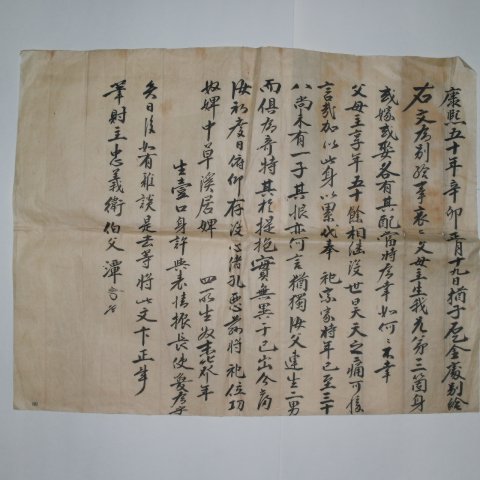 康熙五十年辛卯正月十九日猶子宅全處別給
右文爲別給事哀哀父母主生我兄弟三箇身
或嫁或娶各有其配當時爲幸如何如何不幸
父母主享年五十餘相繼沒世昊天之痛可
言哉加以此身以累代奉祀宗家將年已至三十
八尚未有一子其恨亦何言猶獨汝父連生二男
而俱爲奇特其於提抱實無異于已出今
汝初度日俯仰存沒心緒孔悲玆將祀位
奴婢中草溪居婢 四所生奴 年
生壹口身許與表情振長使喚爲乎
矣日後如有雜談是去等將此文卞正事
筆財主忠義衛伯父潭